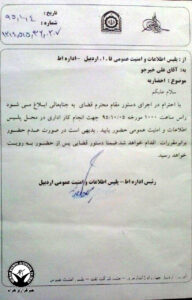 تاریخ: ۹۵,۱۰,۴
شماره:
از: پلیس اطلاعات و امنیت عمومی ف.ا.ا. اردبیل - اداره اط
به: آقای علی خیرجو
موضوع: احضاریه
سلام علیکم
با احترام در اجرای دستور مقام محترم قضایی به جنابعالی ابلاغ می شود
راس ساعت ۱۰۰۰ مورخه ۹۵/۱۰/۰۵ جهت انجام کار اداری در محل پلیس
اطلاعات و امنیت عمومی حضور یابید. بدیهی است در صورت عدم حضور
برابر مقررات اقدام خواهد شد. ضمنا دستور قضایی پس از حضور به رویت
خواهد رسید
رئیس اداره اط - پلیس اطلاعات و امنیت عمومی اردبیل